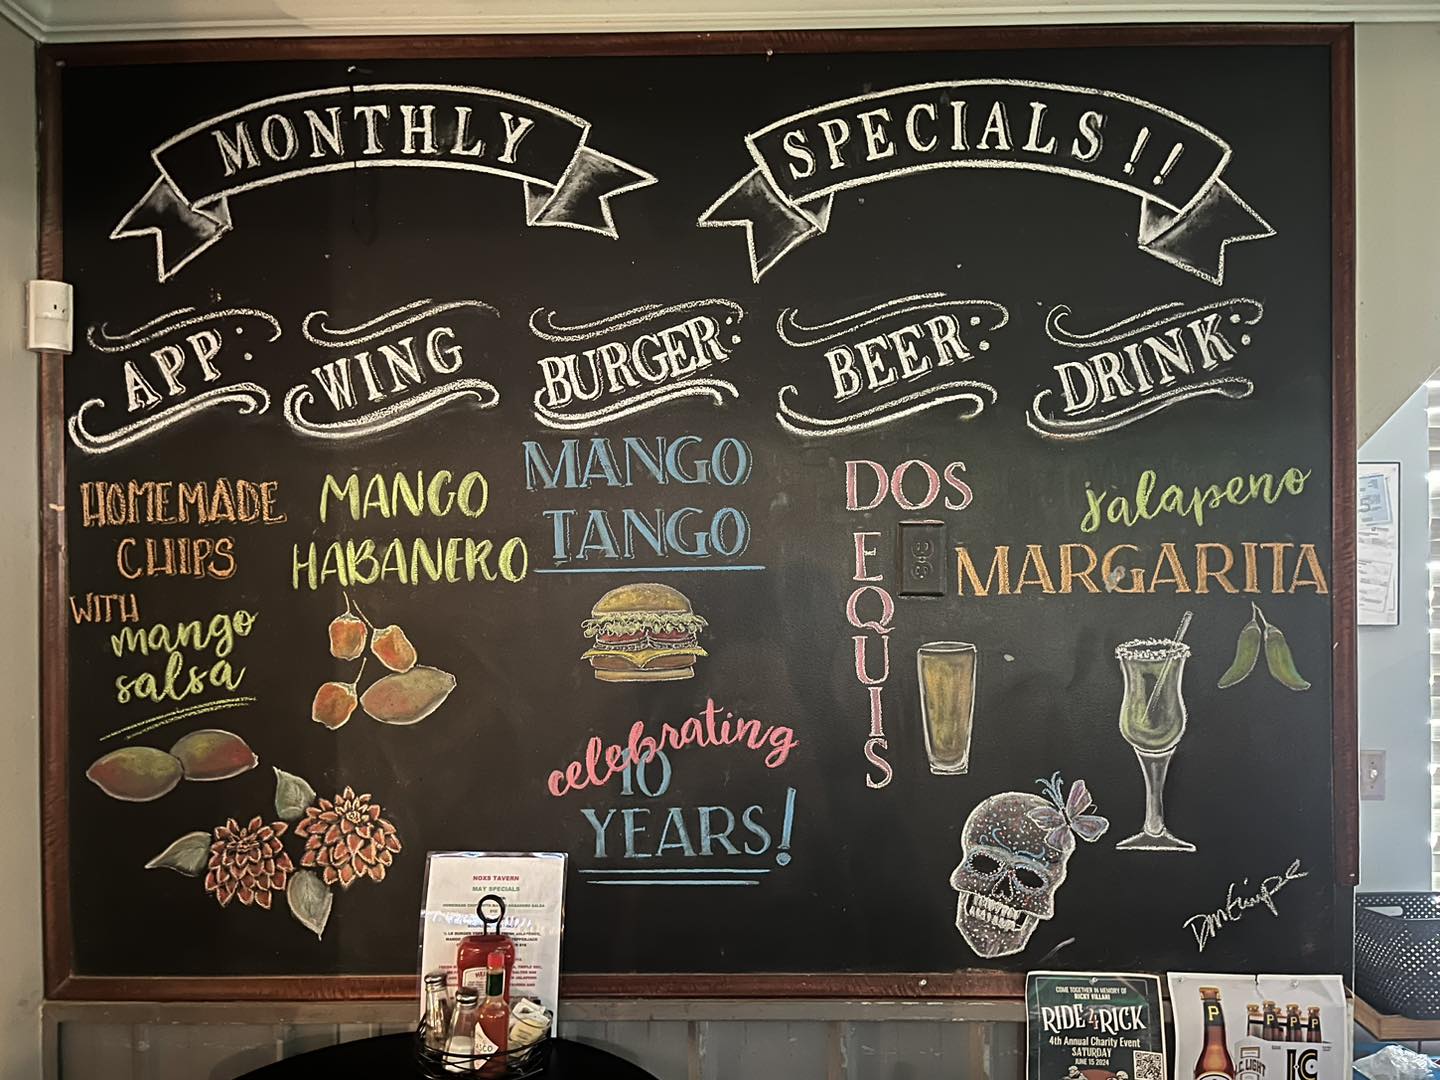 MONTHLY SPECIALS!!
APP:
HOMEMADE
CHIPS
WITH
mango
salsa
WING
MANGO
HABANERO
BURGER:
MANGO
TANGO
celebrating
10
YEARS!
BEER:
DOS
EQUIS
DRINK:
jalapeno
MARGARITA
NOXS TAVERN
MAY SPECIALS
COME TOGETHER IN MEMORY OF
RICKY VILLANI
RIDE 4 RICK
4th Annual Charity Event
SATURDAY
JUNE 15 2024
P
P
P
P
LIGHT
IC